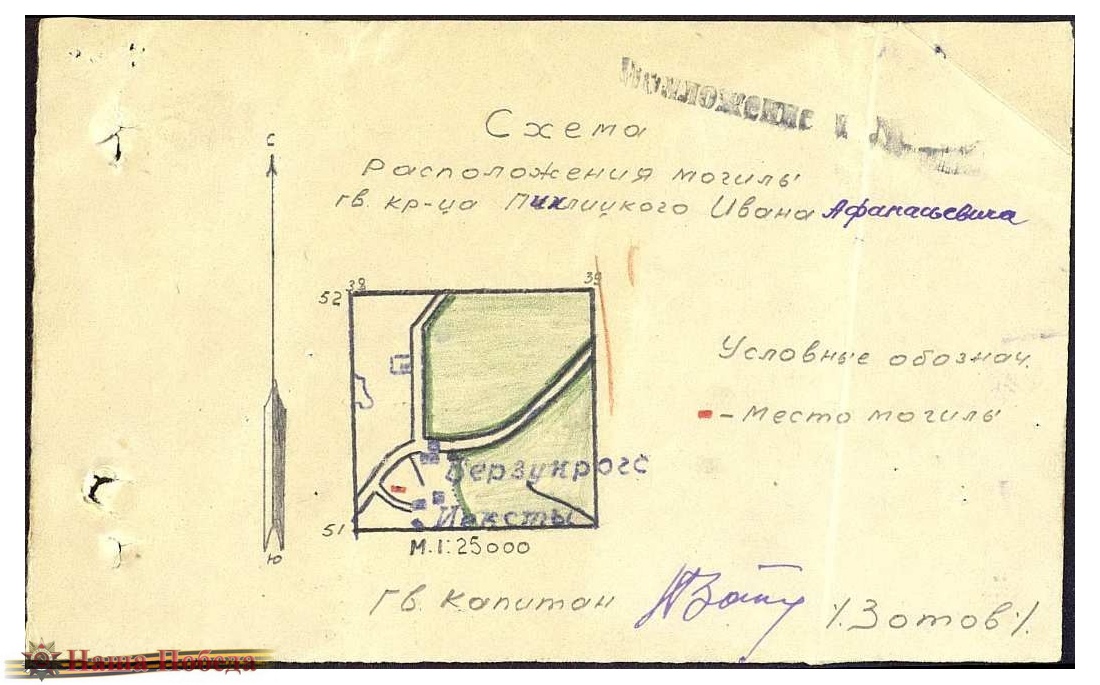 Приложение к №
Схема
Расположения могилы
гв. кр-ца Пихлицкого Ивана Афанасьевича
С
38
39
52
Условные обознач.
- место могилы
Берзукрогс
51
М. 1:25000
Ю
Гв. Капитан /Зотов/.
Наша Победа